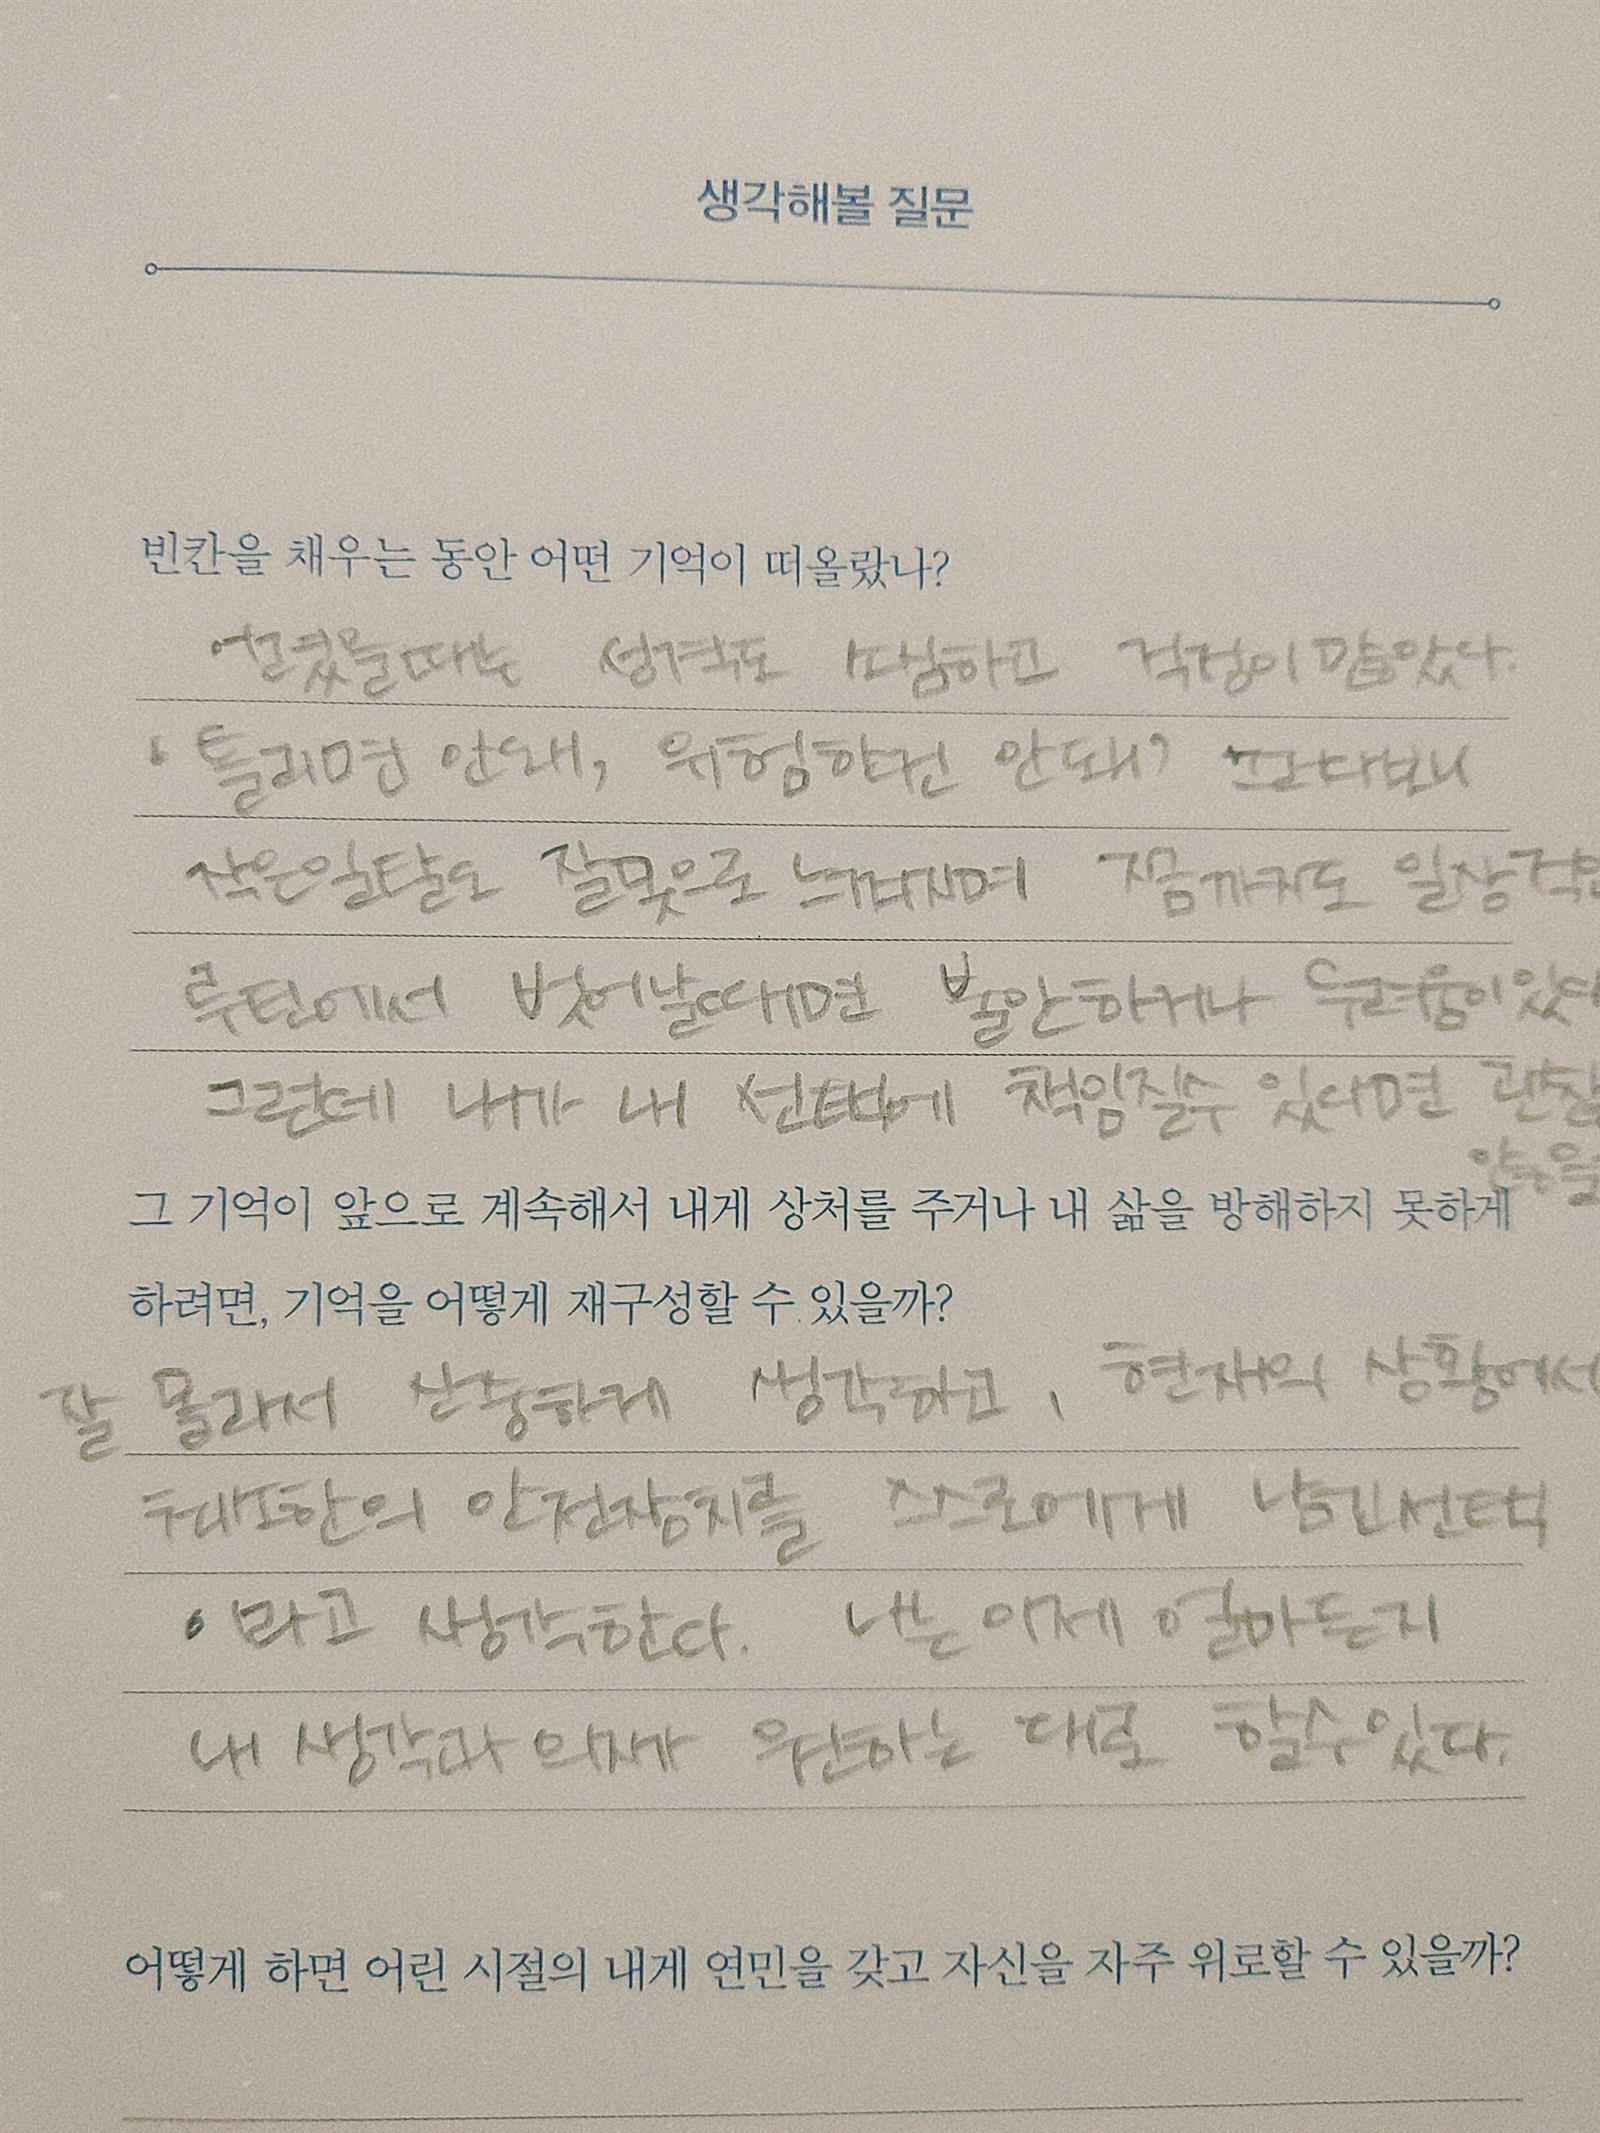 생각해볼 질문
빈칸을 채우는 동안 어떤 기억이 떠올랐나?
어렸을때는 성격도 하고 걱정이 많았다.
틀리면 안돼, 위험하건 안돼? 그러다보니
작은일탈도 잘못으로 느껴지며 지금까지도 일상적인
루틴에서 벗어날때면 불안하거나 두려움이 있다
그런데 내가 내 선택에 책임질수 있다면 괜찮
않을
그 기억이 앞으로 계속해서 내게 상처를 주거나 내 삶을 방해하지 못하게
하려면, 기억을 어떻게 재구성할 수 있을까?
잘 몰라서 신중하게 생각하고, 현재의 상황에서
최대한의 안전장치를 스스로에게 남긴선택
이라고 생각한다. 나는 이제 얼마든지
내 생각과 의지가 원하는 대로 할수있다.
어떻게 하면 어린 시절의 내게 연민을 갖고 자신을 자주 위로할 수 있을까?